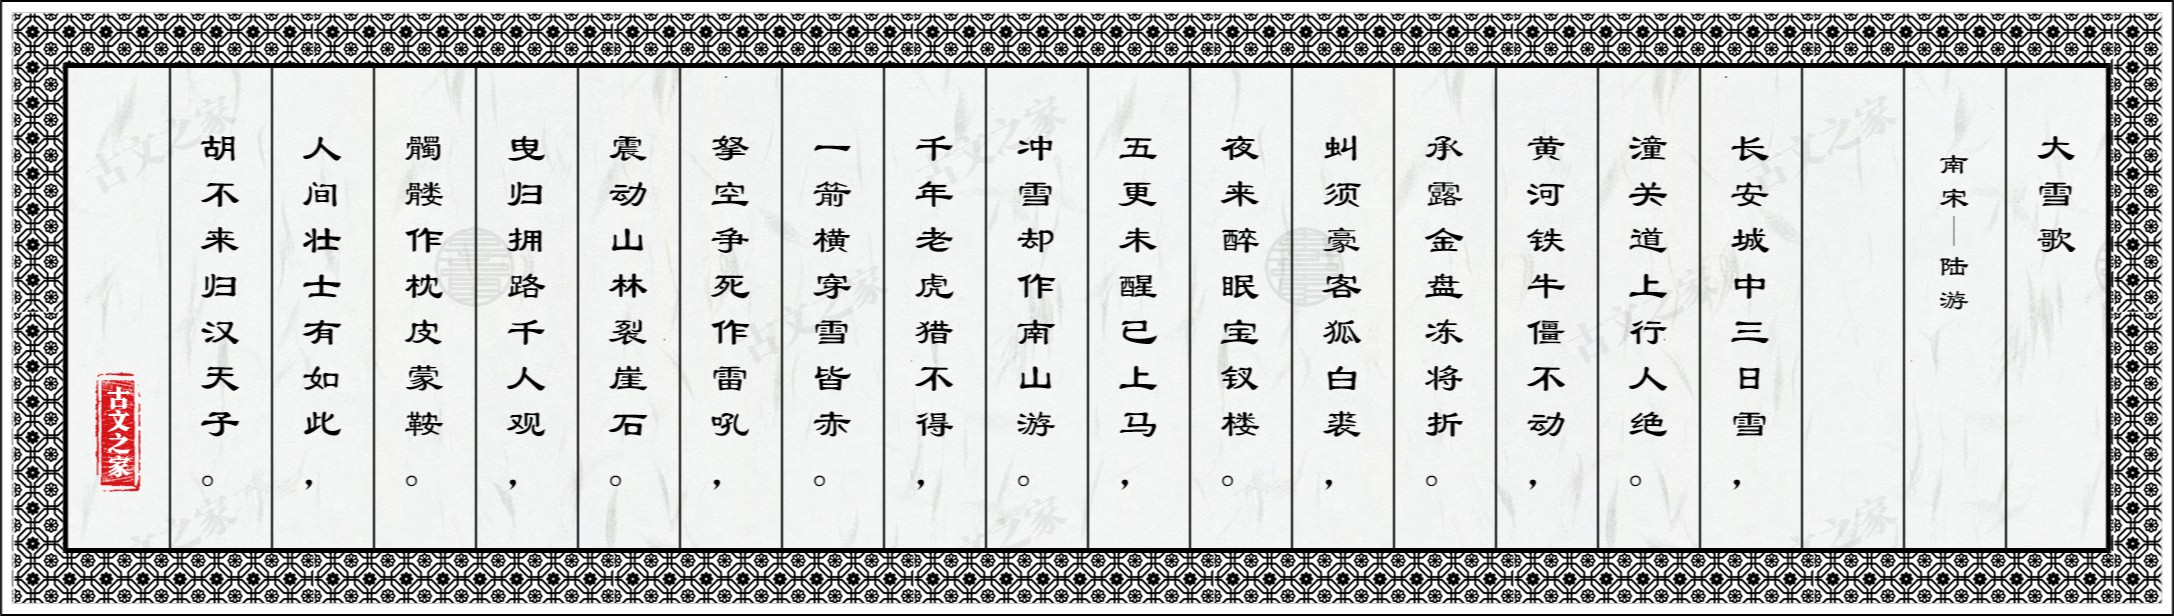 大雪歌
南宋—陆游
长安城中三日雪，
潼关道上行人绝。
黄河铁牛僵不动，
承露金盘冻将折。
虬须豪客狐白裘，
夜来醉眠宝钗楼。
五更未醒已上马，
冲雪却作南山游。
千年老虎猎不得，
一箭横穿雪皆赤。
拏空争死作雷吼，
震动山林裂崖石。
曳归拥路千人观，
髑髅作枕皮蒙鞍。
人间壮士有如此，
胡不来归汉天子。
古文之家